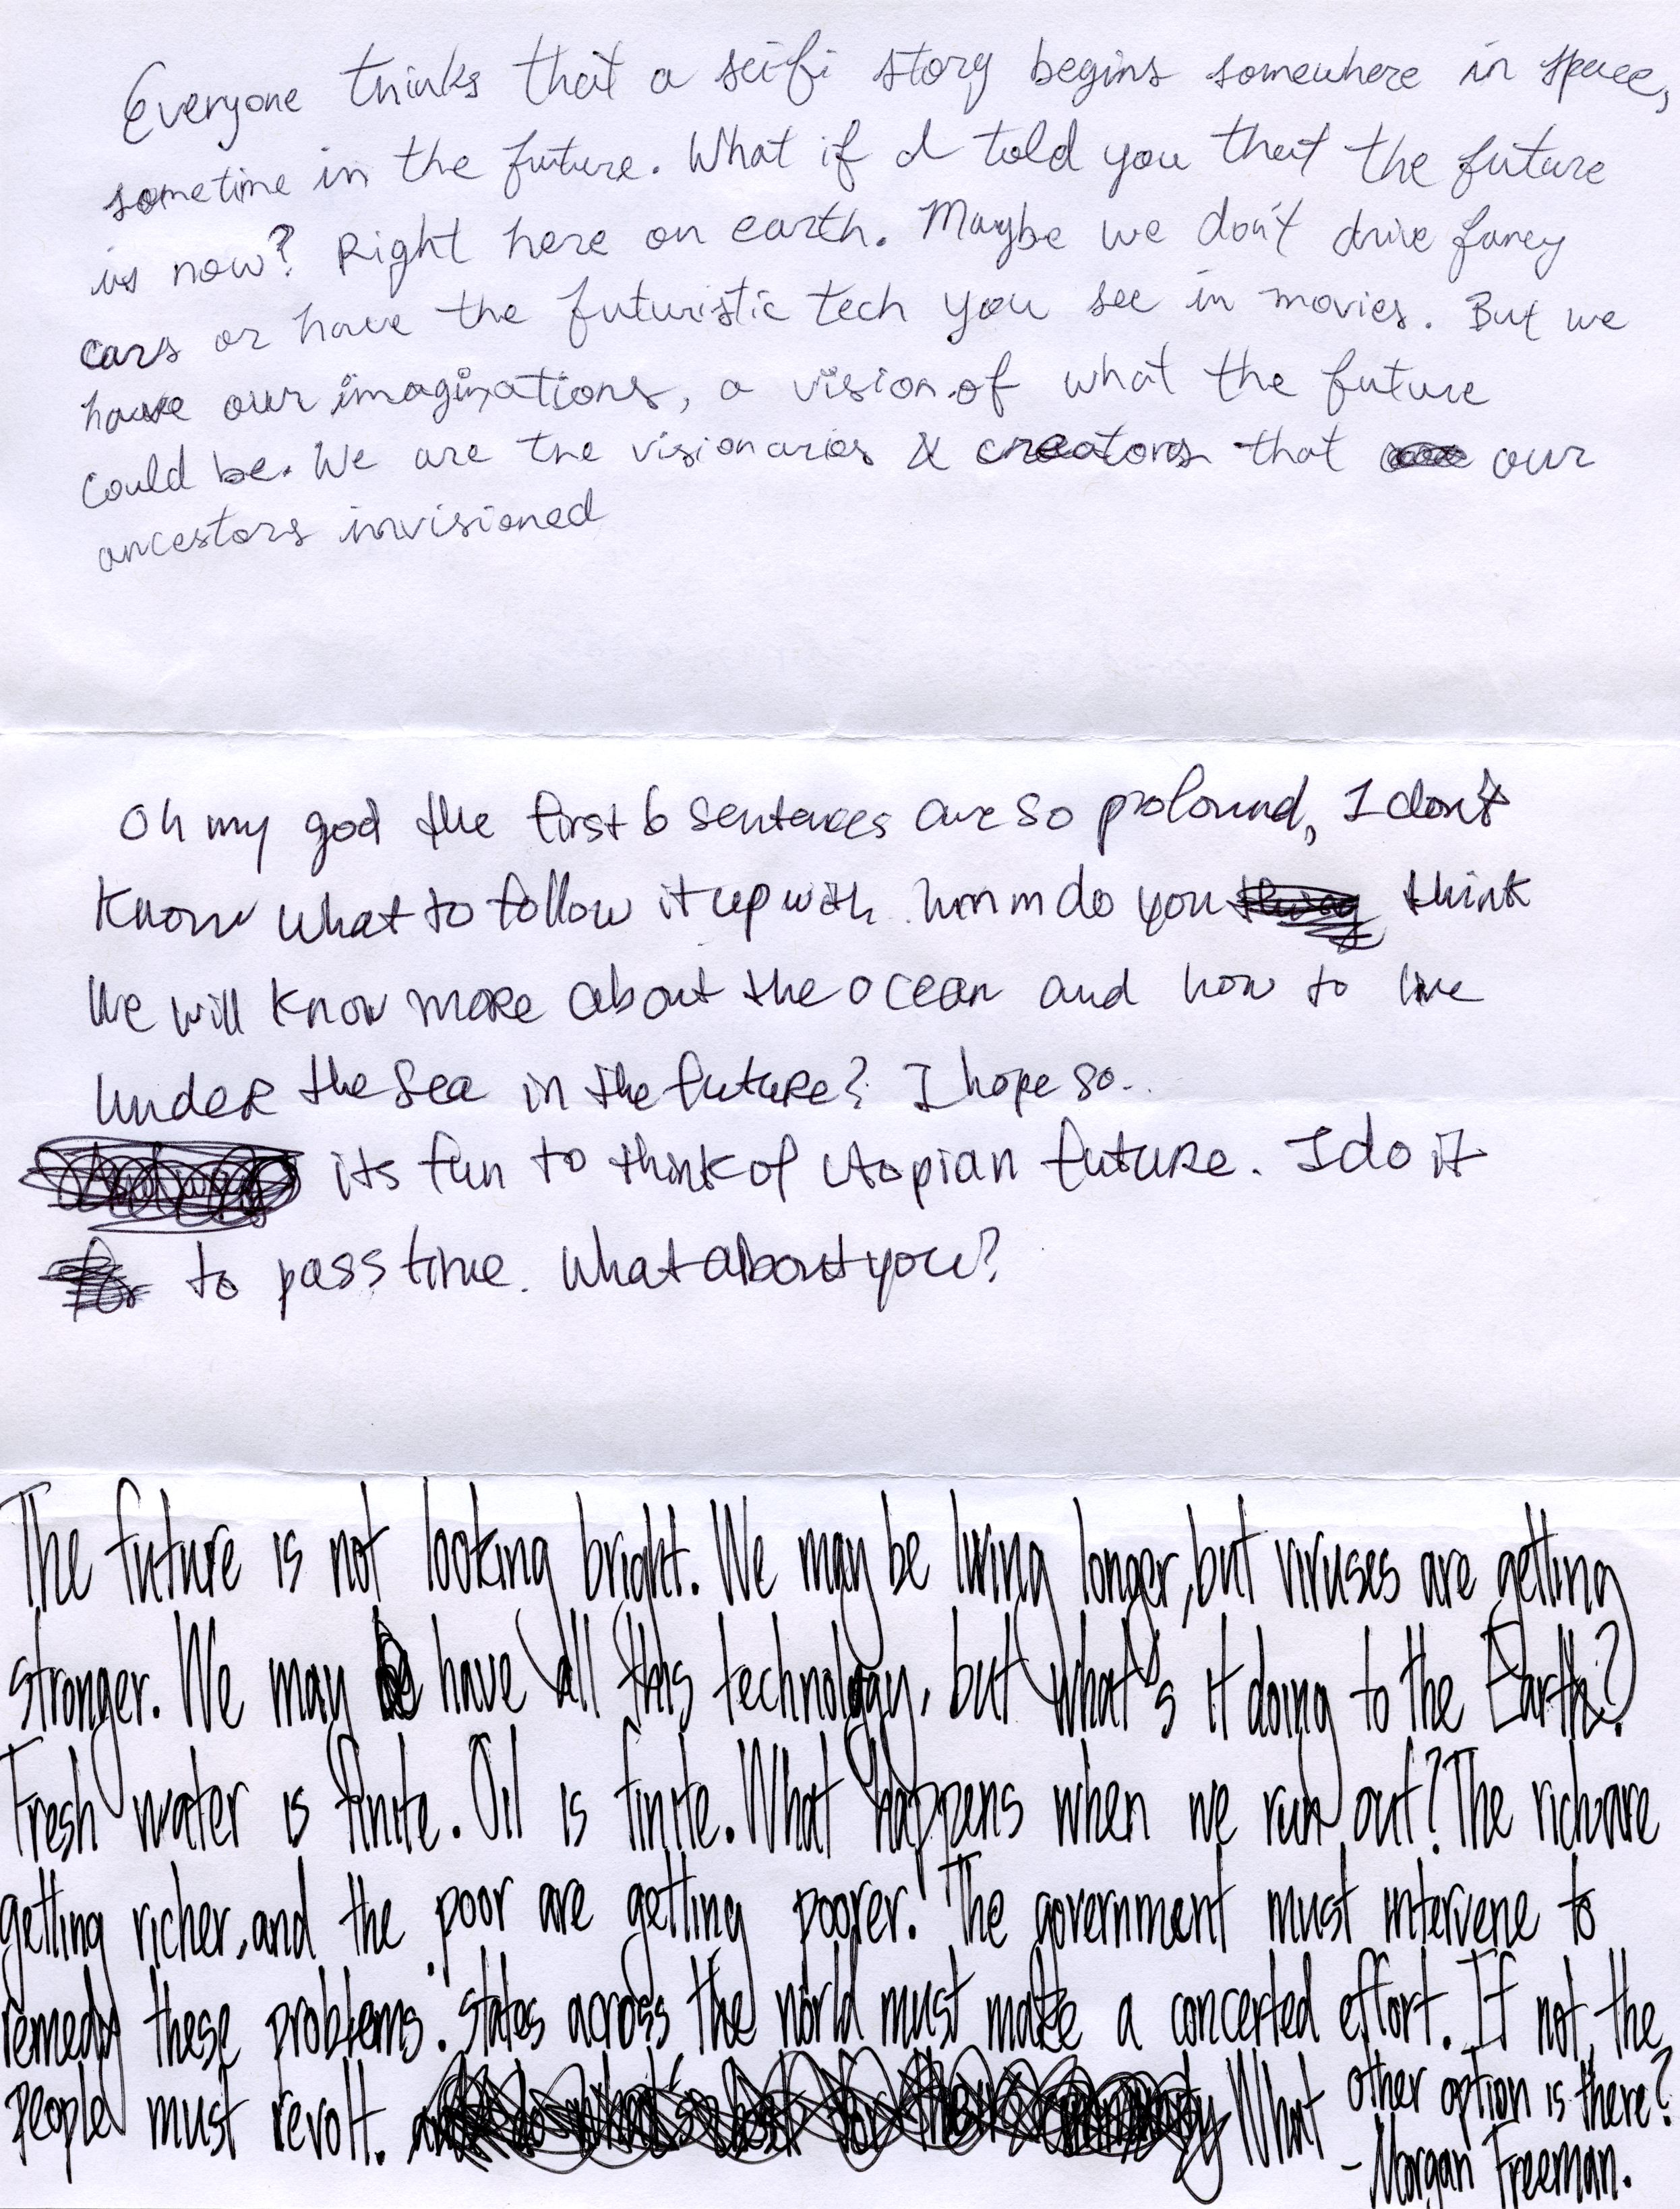 Everyone thinks that a sci-fi story begins somewhere in space,
sometime in the future. What if I told you that the future
is now? Right here on earth. Maybe we don't drive fancy
cars or have the futuristic tech you see in movies. But we
have our imaginations, a vision of what the future
could be. We are the visionaries & creators that our
ancestors invisioned
Oh my god the first 6 sentences are so profound, I don't
know what to follow it up with. hmm do you think
we will know more about the ocean and how to live
under the sea in the future? I hope so..
its fun to think of utopian future. I do it
to pass time. What about you?
The future is not looking bright. We may be living longer, but viruses are getting
stronger. We may have all this technology, but what's it doing to the Earth?
Fresh water is finite. Oil is finite. What happens when we run out? The rich are
getting richer, and the poor are getting poorer. The government must intervene to
remedy these problems. States across the world must make a concerted effort. If not, the
people must revolt. What other option is there?
- Morgan Freeman.